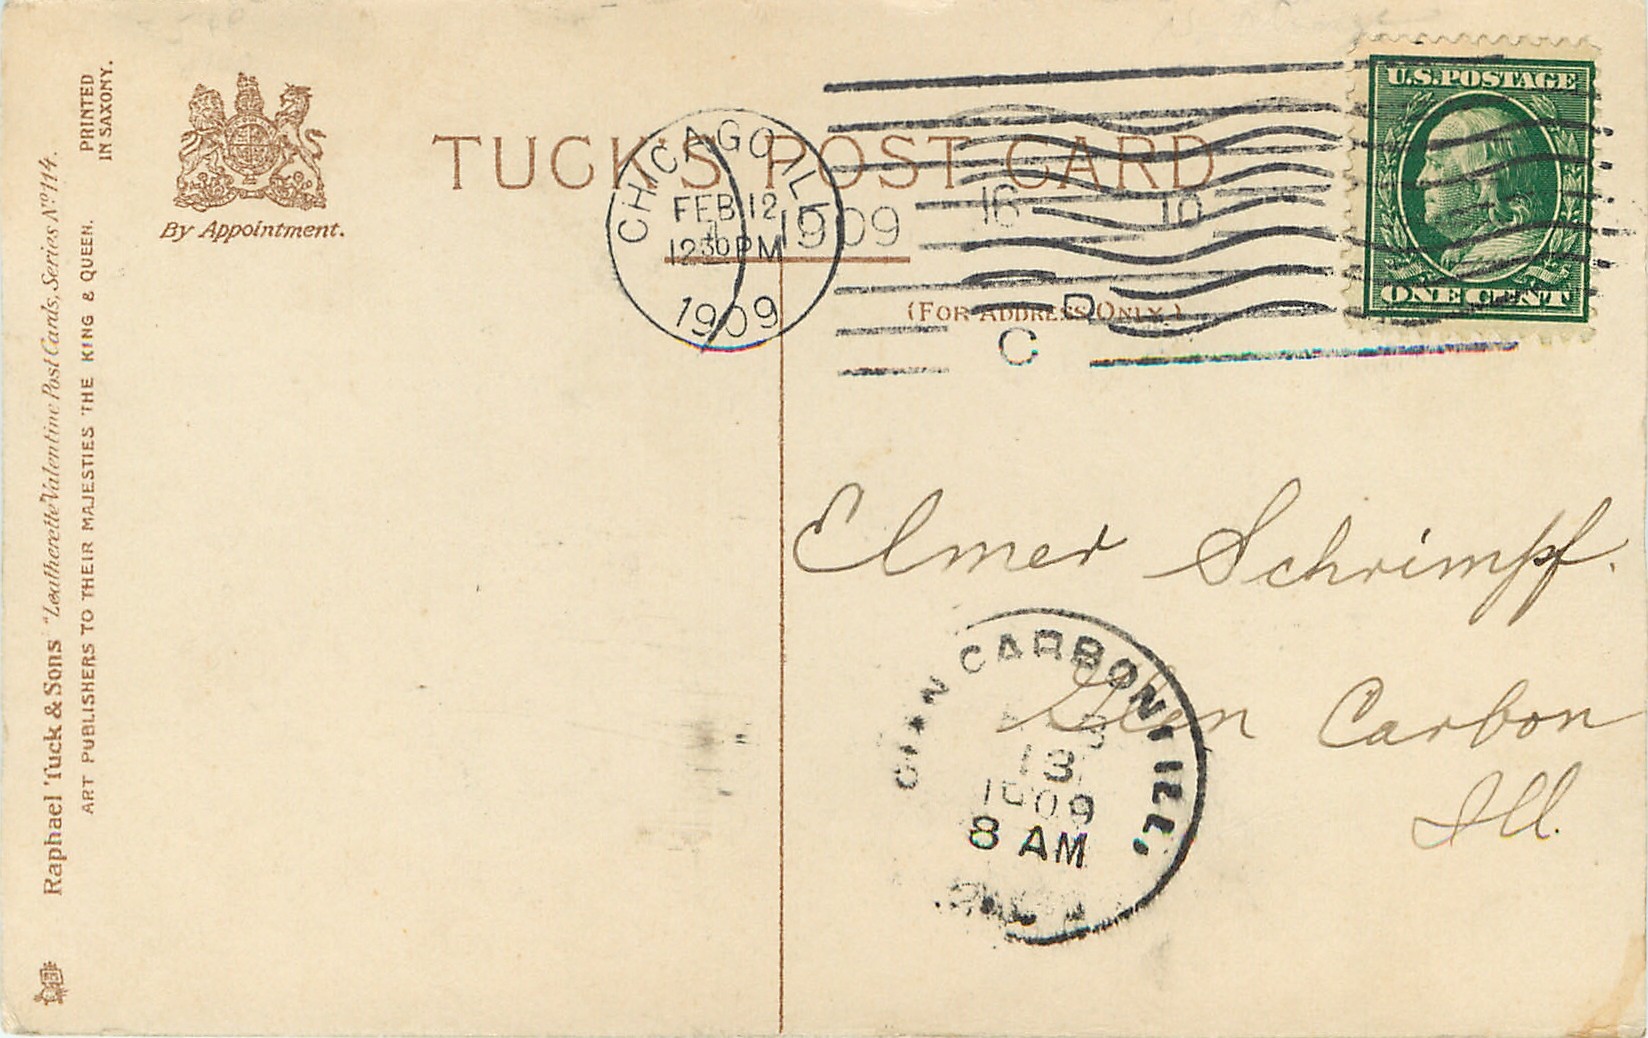 PRINTED
IN SAXONY.
Raphael Tuck & Sons "Leatherette" Valentine Post Cards, Series Nº 114.
ART PUBLISHERS TO THEIR MAJESTIES THE KING & QUEEN.
By Appointment.
TUCK'S POST CARD
(FOR ADDRESS ONLY)
CHICAGO ILL.
FEB 12
12 30 PM
1909
1909
16
10
C
D
U.S. POSTAGE
ONE CENT
Elmer Schrimpf.
Glen Carbon
Ill.
GLEN CARBON, ILL.
13
1909
8 AM